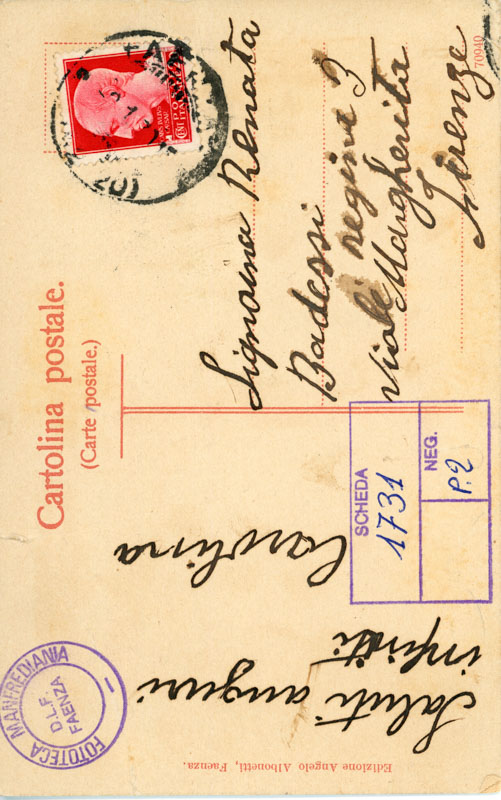 Cartolina postale.
(Carte postale.)
70940
Signorina Renata
Badessi
regina 3
Viale Margherita
Firenze
Saluti auguri
infiniti
Carolina
SCHEDA
1731
NEG.
P.2
FOTOTECA MANFREDIANIA
D.L.F.
FAENZA
Edizione Angelo Albonetti, Faenza.